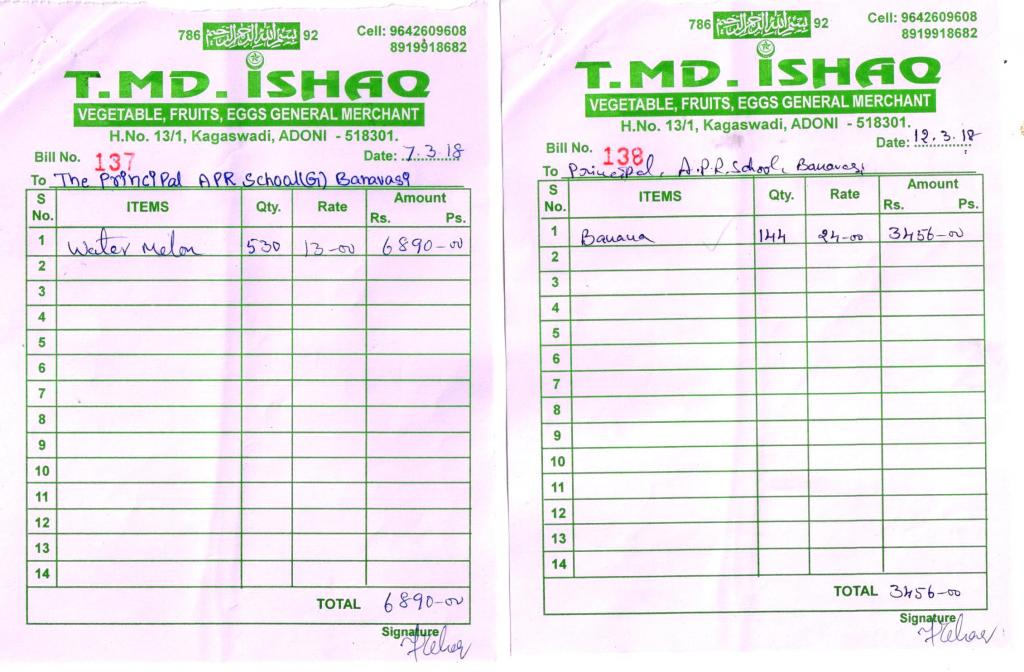 786 بسم الله الرحمن الرحيم 92
Cell: 9642609608
8919918682
T.MD. ISHAQ
VEGETABLE, FRUITS, EGGS GENERAL MERCHANT
H.No. 13/1, Kagaswadi, ADONI - 518301.
Bill No. 137 Date: 7.3.18
To The Principal APR School(G) Banavasi
S No. ITEMS Qty. Rate Amount Rs. Ps.
1 Water Melon 530 13-00 6890-00
2
3
4
5
6
7
8
9
10
11
12
13
14
TOTAL 6890-00
Signature
786 بسم الله الرحمن الرحيم 92
Cell: 9642609608
8919918682
T.MD. ISHAQ
VEGETABLE, FRUITS, EGGS GENERAL MERCHANT
H.No. 13/1, Kagaswadi, ADONI - 518301.
Bill No. 138 Date: 12.3.18
To Principal, A.P.R. School, Banavasi
S No. ITEMS Qty. Rate Amount Rs. Ps.
1 Banana 144 24-00 3456-00
2
3
4
5
6
7
8
9
10
11
12
13
14
TOTAL 3456-00
Signature